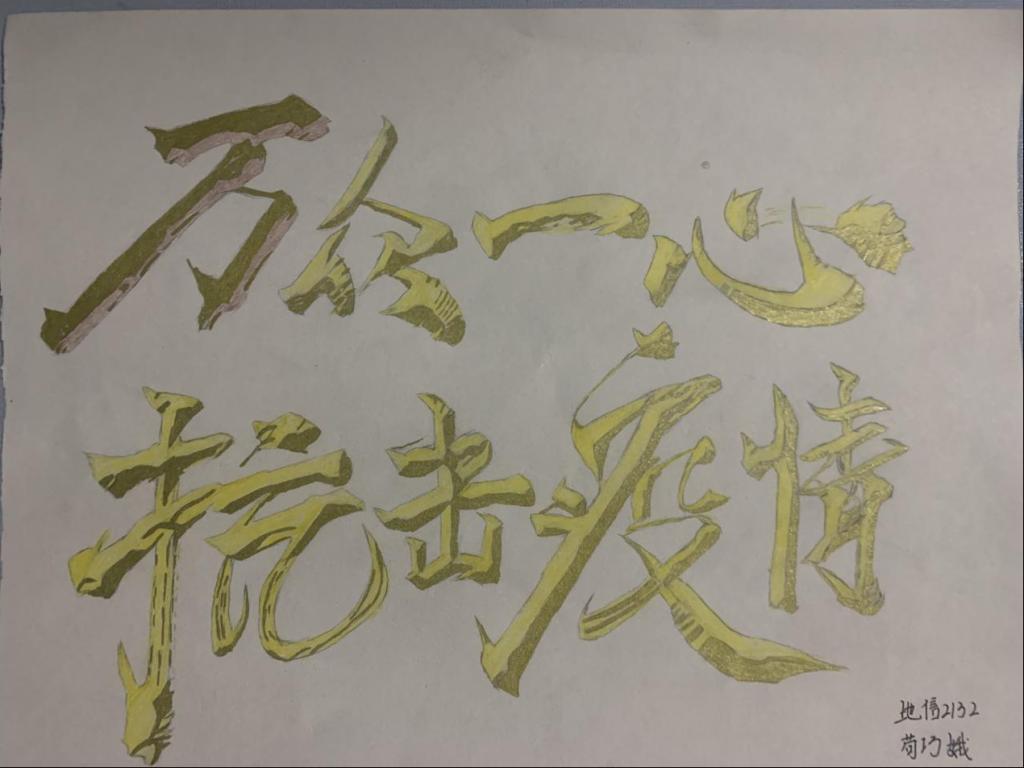 万众一心
抗击疫情
地信2132
苟巧娥